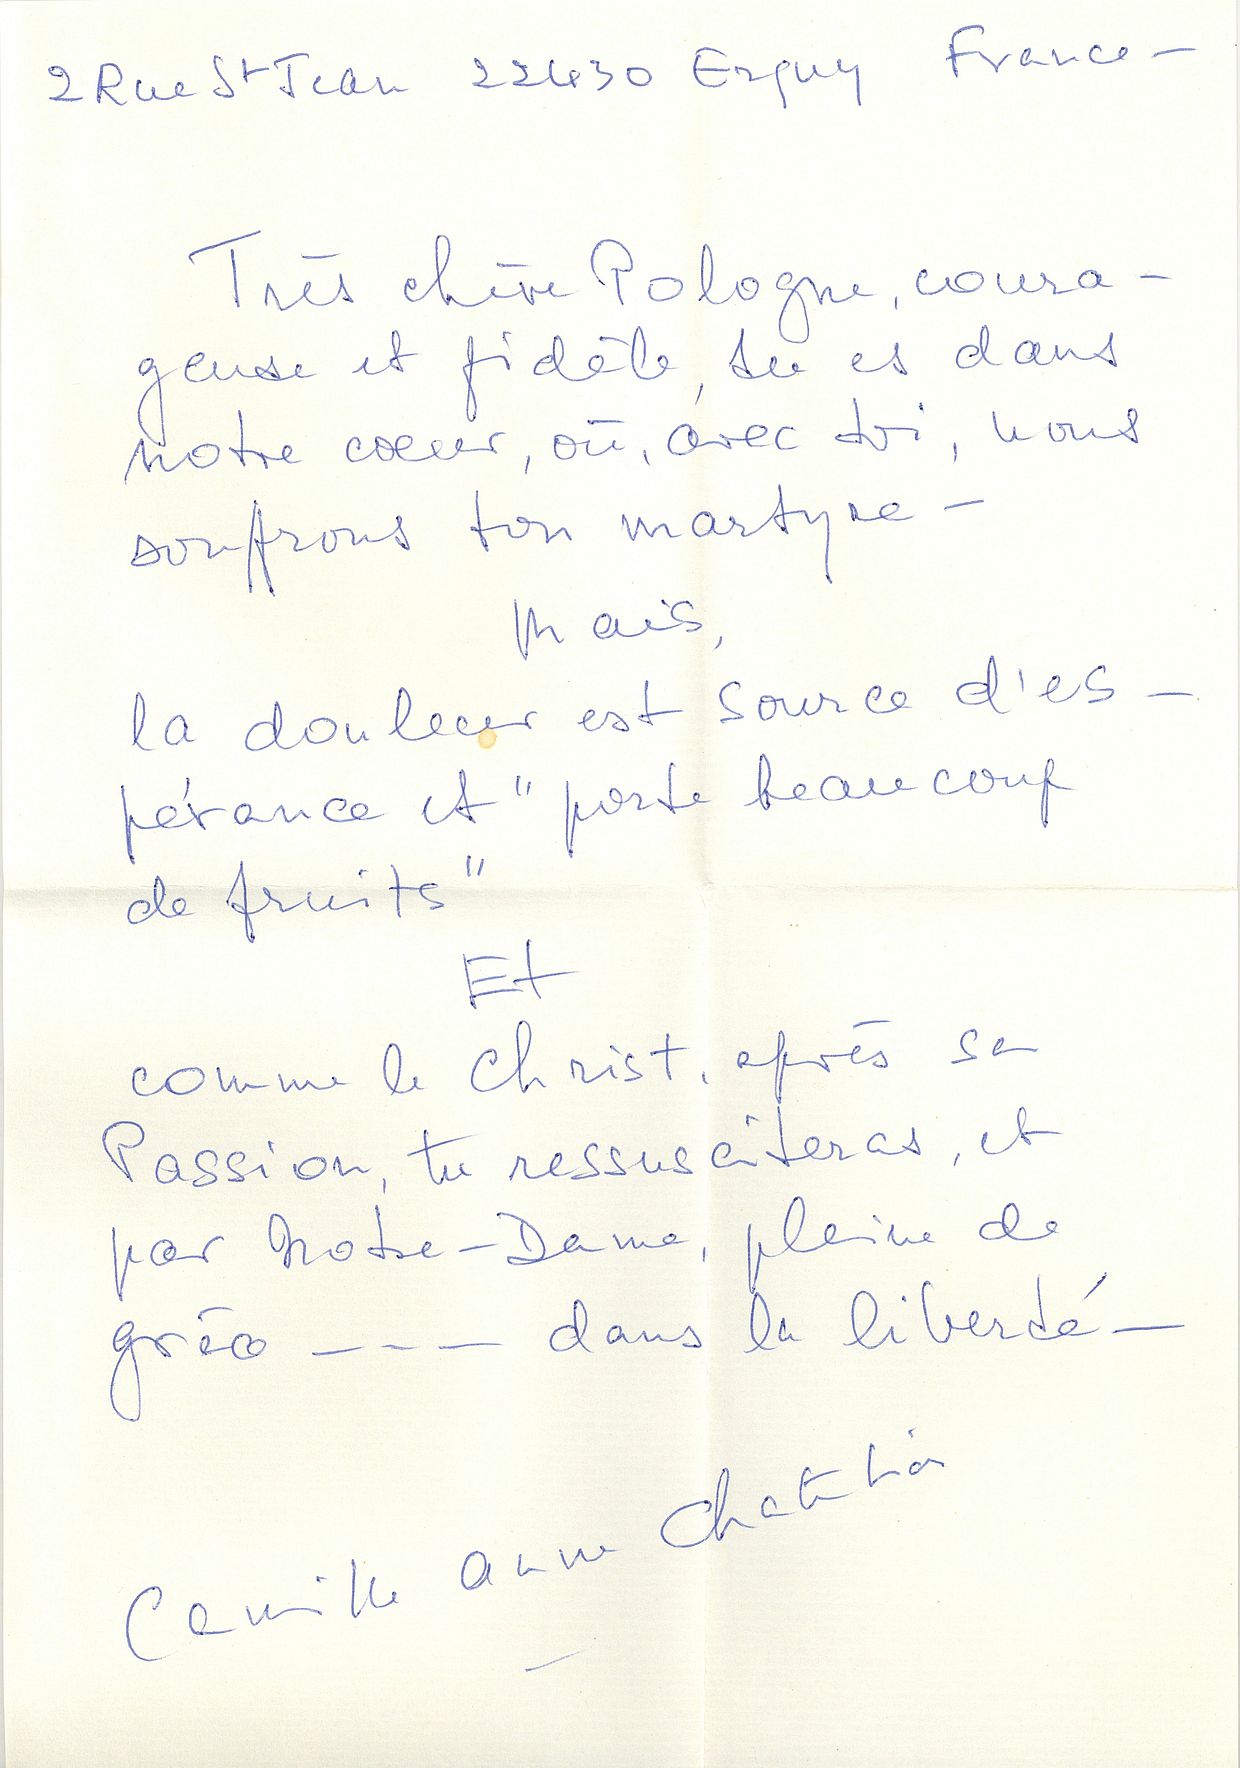 2 Rue St Jean 22430 Erquy France –
Très chère Pologne, coura –
geuse et fidèle, tu es dans
notre coeur, où, avec toi, nous
souffrons ton martyre –
Mais,
la douleur est source d'es –
pérance et "porte beaucoup
de fruits"
Et
comme le Christ, après sa
Passion, tu ressusciteras, et
par Notre-Dame, pleine de
grâce – – – – dans la liberté –
Camille Anne